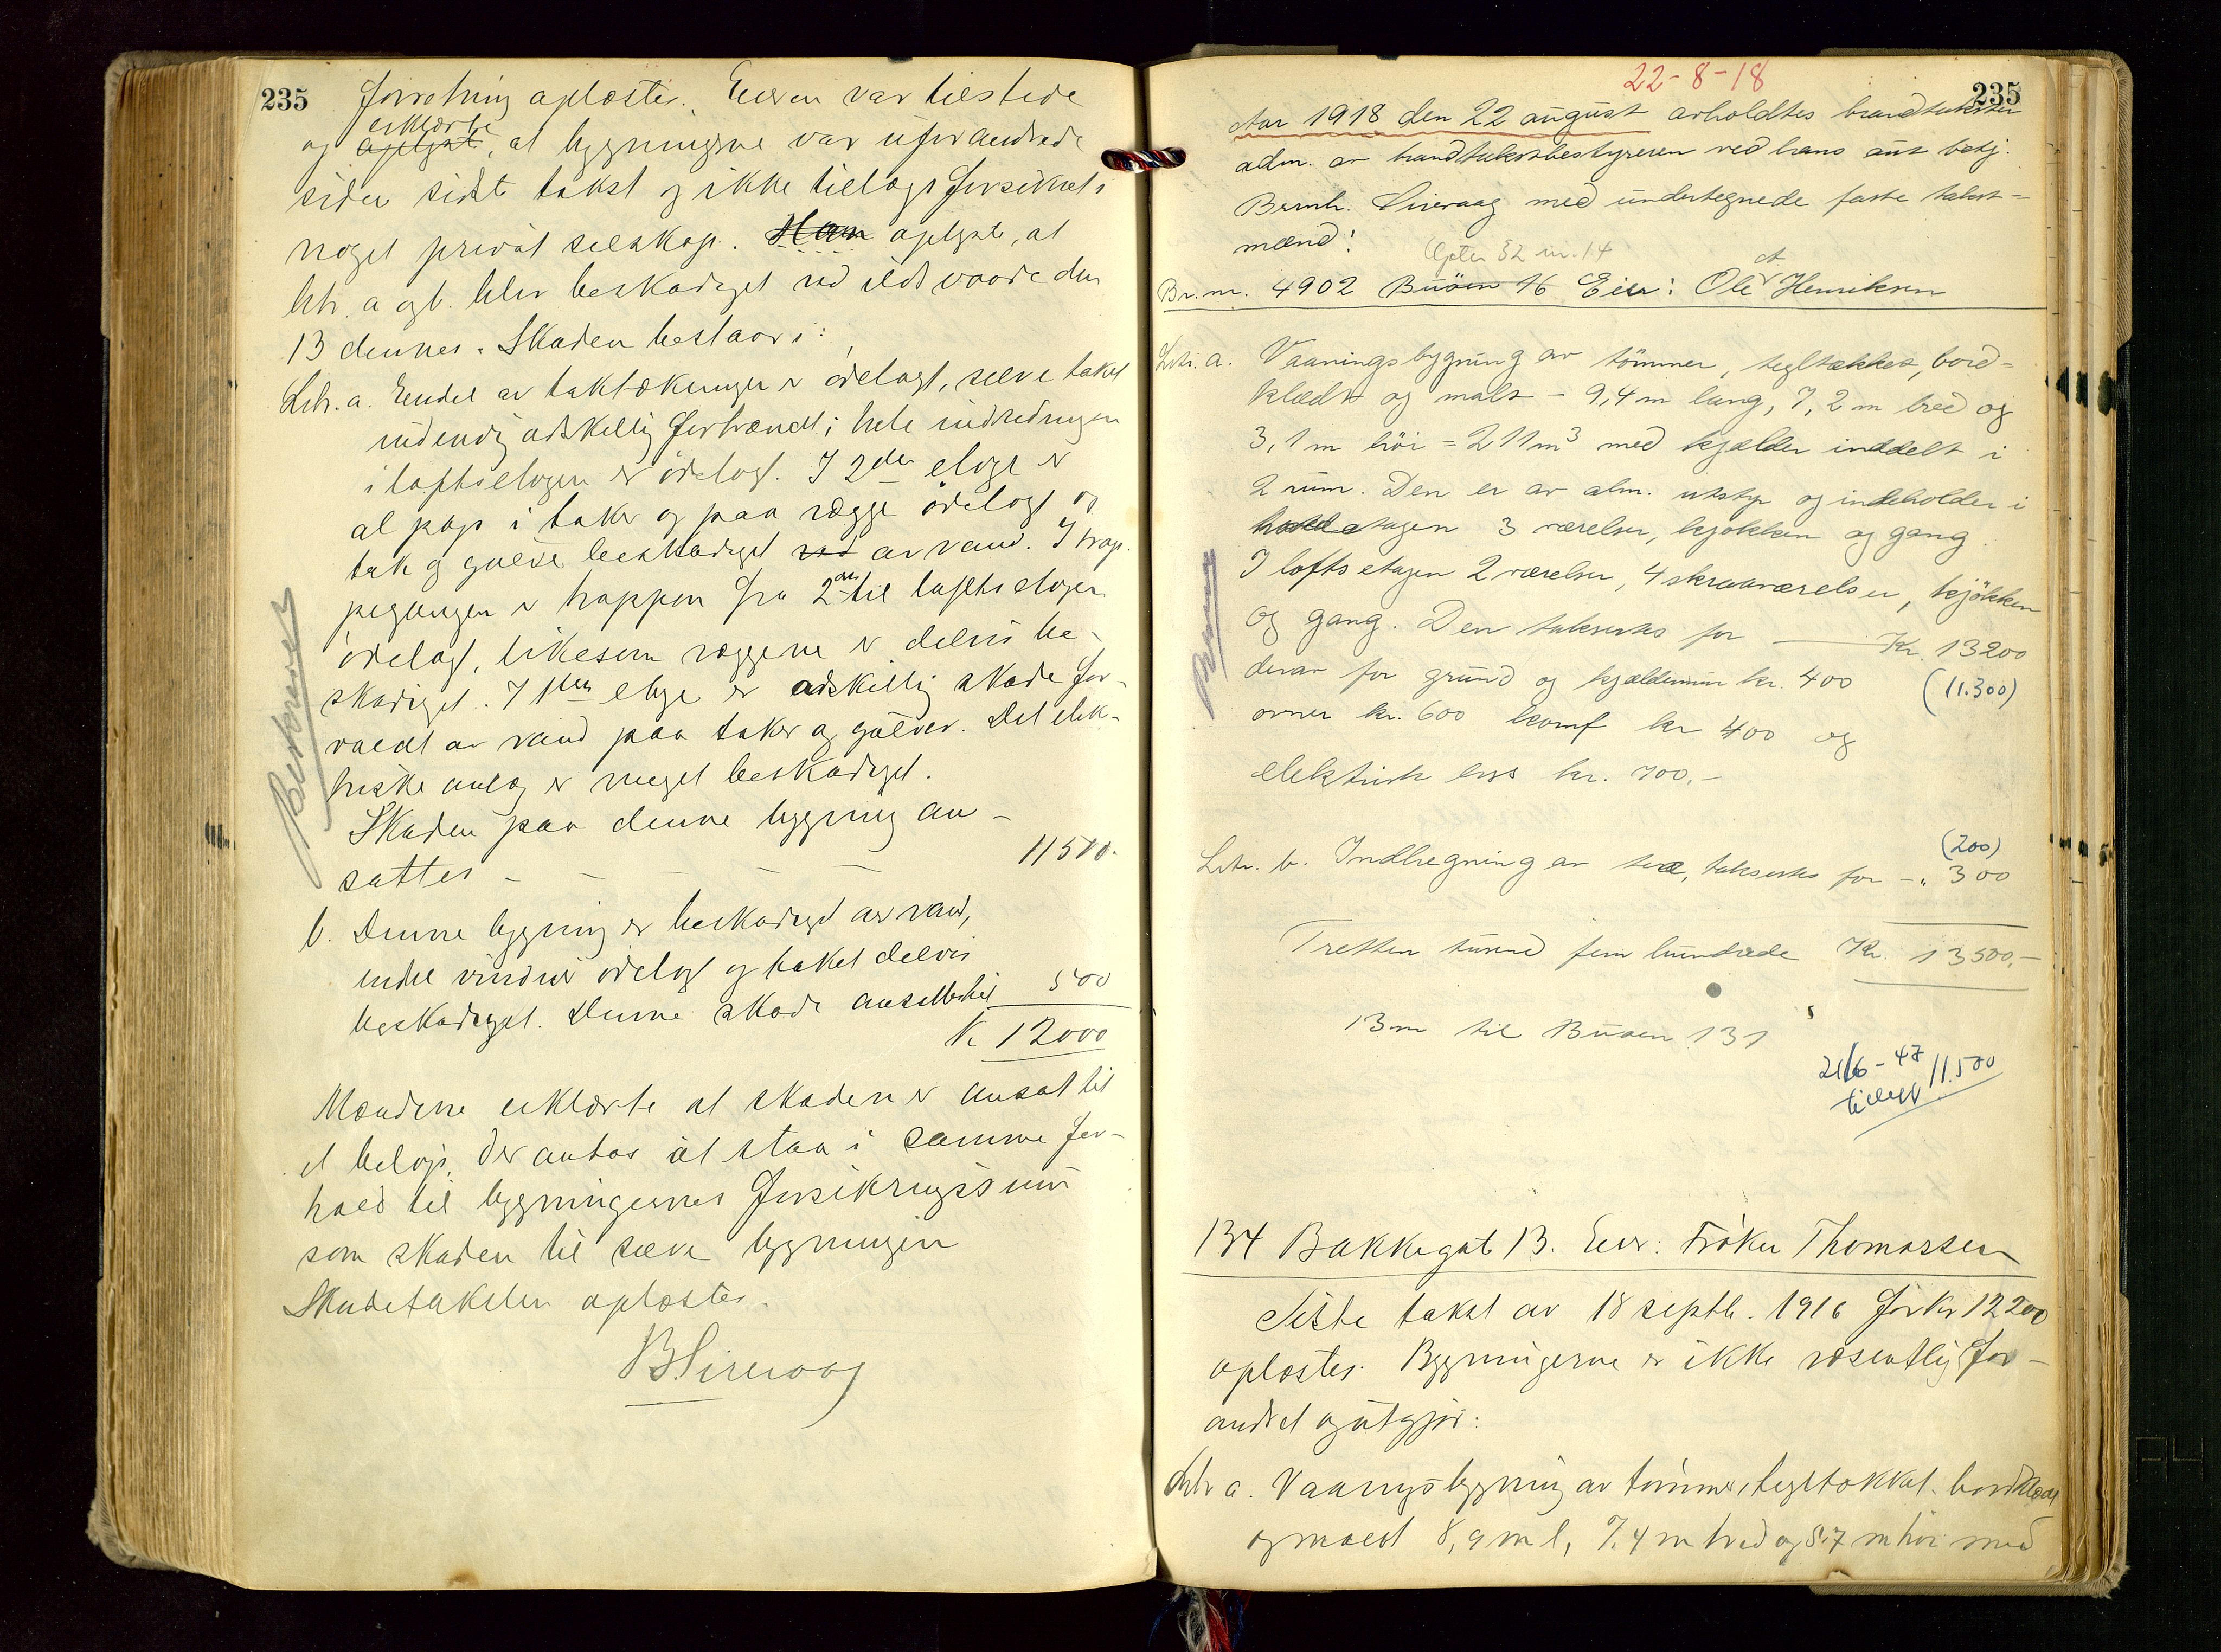 235
forretning oplæstes. Eieren var tilstede
erklærte
og oplyste, at bygningerne var uforandrede
siden sidste takst og ikke tillags forsikret i
noget privat selskap. Han oplyste, at
litr. a og b. blev beskadiget ved ildsvaade den
13 dennes. Skaden bestaar i:
Litr. a. Endel av taktækningen er ödelagt, selve taket
indvendig adskillig forbrændt; hele indredningen
i loftsetagen er ödelagt. I 2den etage er
al pap i taker og paa vægge ödelagt og
tak og gulve beskadiget ved av vand. I trap-
pegangen er trappen fra 2den til loftsetagen
ödelagt, likesom væggene er delvis be-
skadiget. I 1ste etage er adskillig skade for-
voldt av vand paa taker og gulver. Det elek-
triske anlæg er meget beskadiget.
Skaden paa denne bygning an-
sættes - - - - - 11500.
b. Denne bygning er beskadiget av vand,
endel vinduer ödelagt og taket delvis
beskadiget. Denne skade ansættes til 500
Kr 12000
Mændene erklærte at skaden er ansat til
et belöp, der antas at staa i samme for-
hold til bygningernes forsikringssum
som skaden til selve bygningen
Skadetaksten oplæstes.
B Sirevaag
22-8-18
235
Aar 1918 den 22 august avholdtes brandtakster
adm. av brandtakstbestyreren ved hans aut. betj.
Bernh. Sirevaag med undertegnede faste takst-
mænd:
Br.nr. 4902 Buöen 16 Eier: Ole Henriksen
Litr. a. Vaaningsbygning av tömmer, tegltækket, bord-
klædt og malt - 9,4 m lang, 7,2 m bred og
3,1 m höi = 211 m³ med kjælder inddelt i
2 rum. Den er av alm. utstyr og indeholder i
hovedetagen 3 værelser, kjökken og gang.
I loftsetagen 2 værelser, 4 skraaværelser, kjökken
og gang. Den takseres for — Kr. 13200
derav for grund og kjældermur kr. 400 (11.300)
ovner kr. 600 komf kr 400 og
elektrisk lys kr. 700.-
(200)
Litr. b. Indhegning av træ, takseres for - " 300
Tretten tusend fem hundrede Kr. 13500,-
13 m til Buöen 131
21/6-47
tillegg 11.500
134 Bakkegate 13. Eier: Fröken Thomassen
Siste takst av 18 septb. 1916 for kr 12200
oplæstes. Bygningerne er ikke væsentlig for-
andret og utgjör:
Litr a. Vaaningsbygning av tömmer, tegltækket, bordklædt
og malt 8,9 m l, 7,4 m bred og 5,7 m höi med